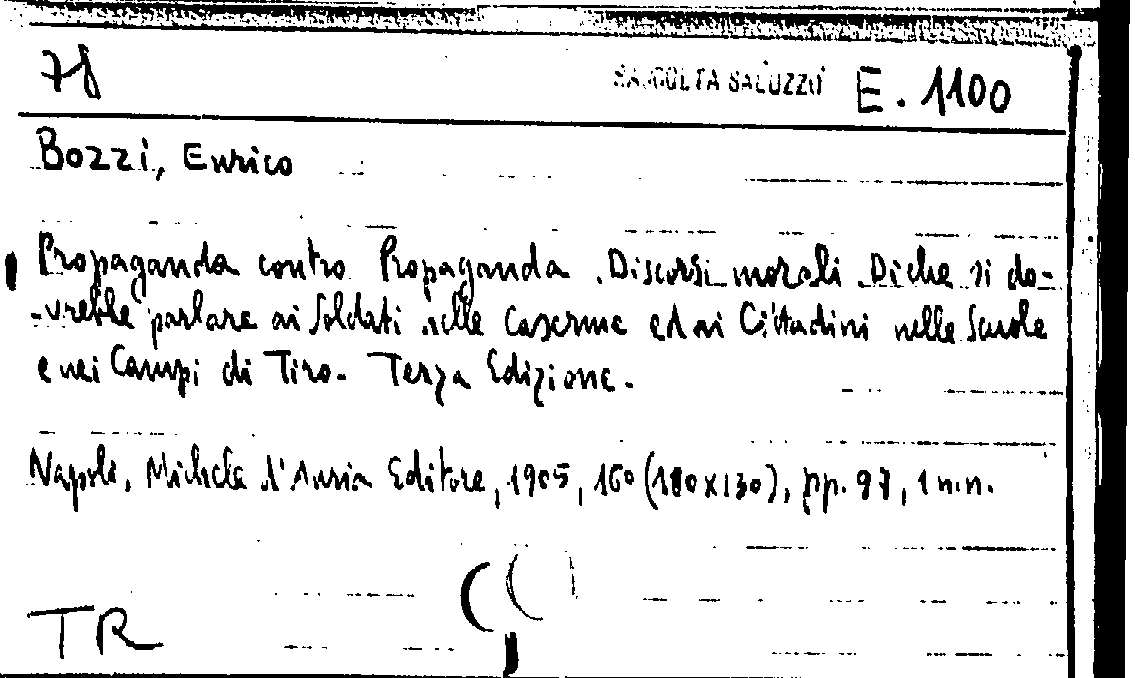 78 RACCOLTA SALUZZO E. 1100
Bozzi, Enrico
Propaganda contro Propaganda. Discorsi morali. Di che si do-
-vrebbe parlare ai Soldati nelle Caserme ed ai Cittadini nelle Scuole
e nei Campi di Tiro. Terza Edizione.
Napoli, Michele d'Auria Editore, 1905, 16° (180x130), pp. 97, 1 n.n.
TR